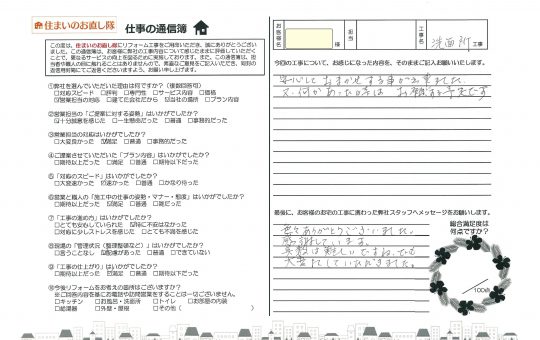 住まいのお直し隊 仕事の通信簿
この度は、住まいのお直し隊にリフォーム工事をご用命いただき、誠にありがとうござい
ました。この通信簿は、お客様に弊社の工事内容についてを感じたままに評価していただく
ことで、更なるサービスの向上を図るために実施しております。また、この通信簿は、担
当者や職人の目に触れることはありませんので、率直なご意見をご記入いただき、同封の
返信用封筒にてご返信くださいますよう、お願い申し上げます。
①弊社を選んでいただいた理由は何ですか？（複数回答可）
□対応スピード □評判 □専門性 □サービス内容 □価格
☑営業担当の対応 □建てた会社だから ☑当社の雰囲 □プラン内容
②営業担当の「ご提案に対する姿勢」はいかがでしたか？
☑十分誠意を感じた □一生懸命だった □普通 □事務的だった
③営業担当の対応はいかがでしたか？
□大変良かった ☑満足 □普通 □事務的だった
④ご提案させていただいた「プラン内容」はいかがでしたか？
□期待以上だった ☑満足 □普通 □期待以下だった
⑤「対応のスピード」はいかがでしたか？
□大変速かった ☑速かった □普通 □かなり待った
⑥営業と職人の「施工中の仕事の姿勢・マナー・態度」はいかがでしたか？
□期待以上だった ☑満足 □普通 □期待以下だった
⑦「工事の進め方」はいかがでしたか？
□とても安心していられた ☑特に不安はなかった
□対応に少しストレスを感じた □とても不満を感じた
⑧現場の「管理状況（整理整頓など）」はいかがでしたか？
□言うことなし ☑配慮があった □普通 □できていない
⑨「工事の仕上がり」はいかがでしたか？
□期待以上だった ☑満足 □普通 □期待以下だった
⑩今後リフォームをお考えの箇所はございますか？
※ご回答内容を基にお電話や訪問営業をすることは一切ございません。
□キッチン □お風呂・洗面所 □トイレ □お部屋の内装
□給湯器 □外壁・屋根 □その他（ ）
お客様名 様 工事名 洗面所 工事
今回の工事について、お感じになった内容を、そのままご記入お願いいたします。
安心しておまかせする事が出来ました
又、何かあった時は お願いする予定です
最後に、お客様のお宅の工事に携わった弊社スタッフへメッセージをお願いします。
ありがとうございました。
感謝しています。
大変だしていただきました。
総合満足度は
何点ですか？
/100点